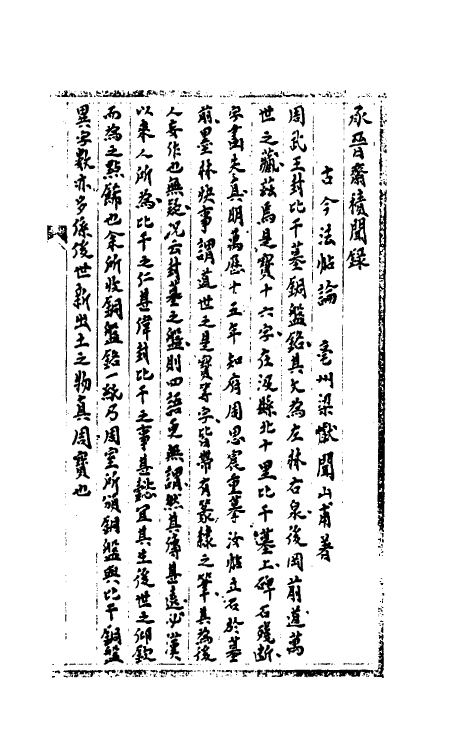 承晉齋積聞錄
古今法帖論　亳州梁巘聞山甫著
周武王封比干墓銅盤銘其文為左林右泉後岡前道萬
世之藏茲焉是寶十六字在汲縣北十里比干墓上碑石殘斷
字畫失真明萬歷十五年知府周思宸重摹汝帖立石於墓
前墨林快事謂道世之是寶等字皆帶有篆隸之筆其為後
人妄作也無疑況云封墓之盤則四語更無謂然其傳甚遠必漢
以來人所為比干之仁甚偉封比干之事甚懿宜其生後世之仰欽
而為之點飾也余所收銅盤銘一紙乃周室所頒銅盤與比干銅盤
異字數亦多係後世新出土之物真周寶也